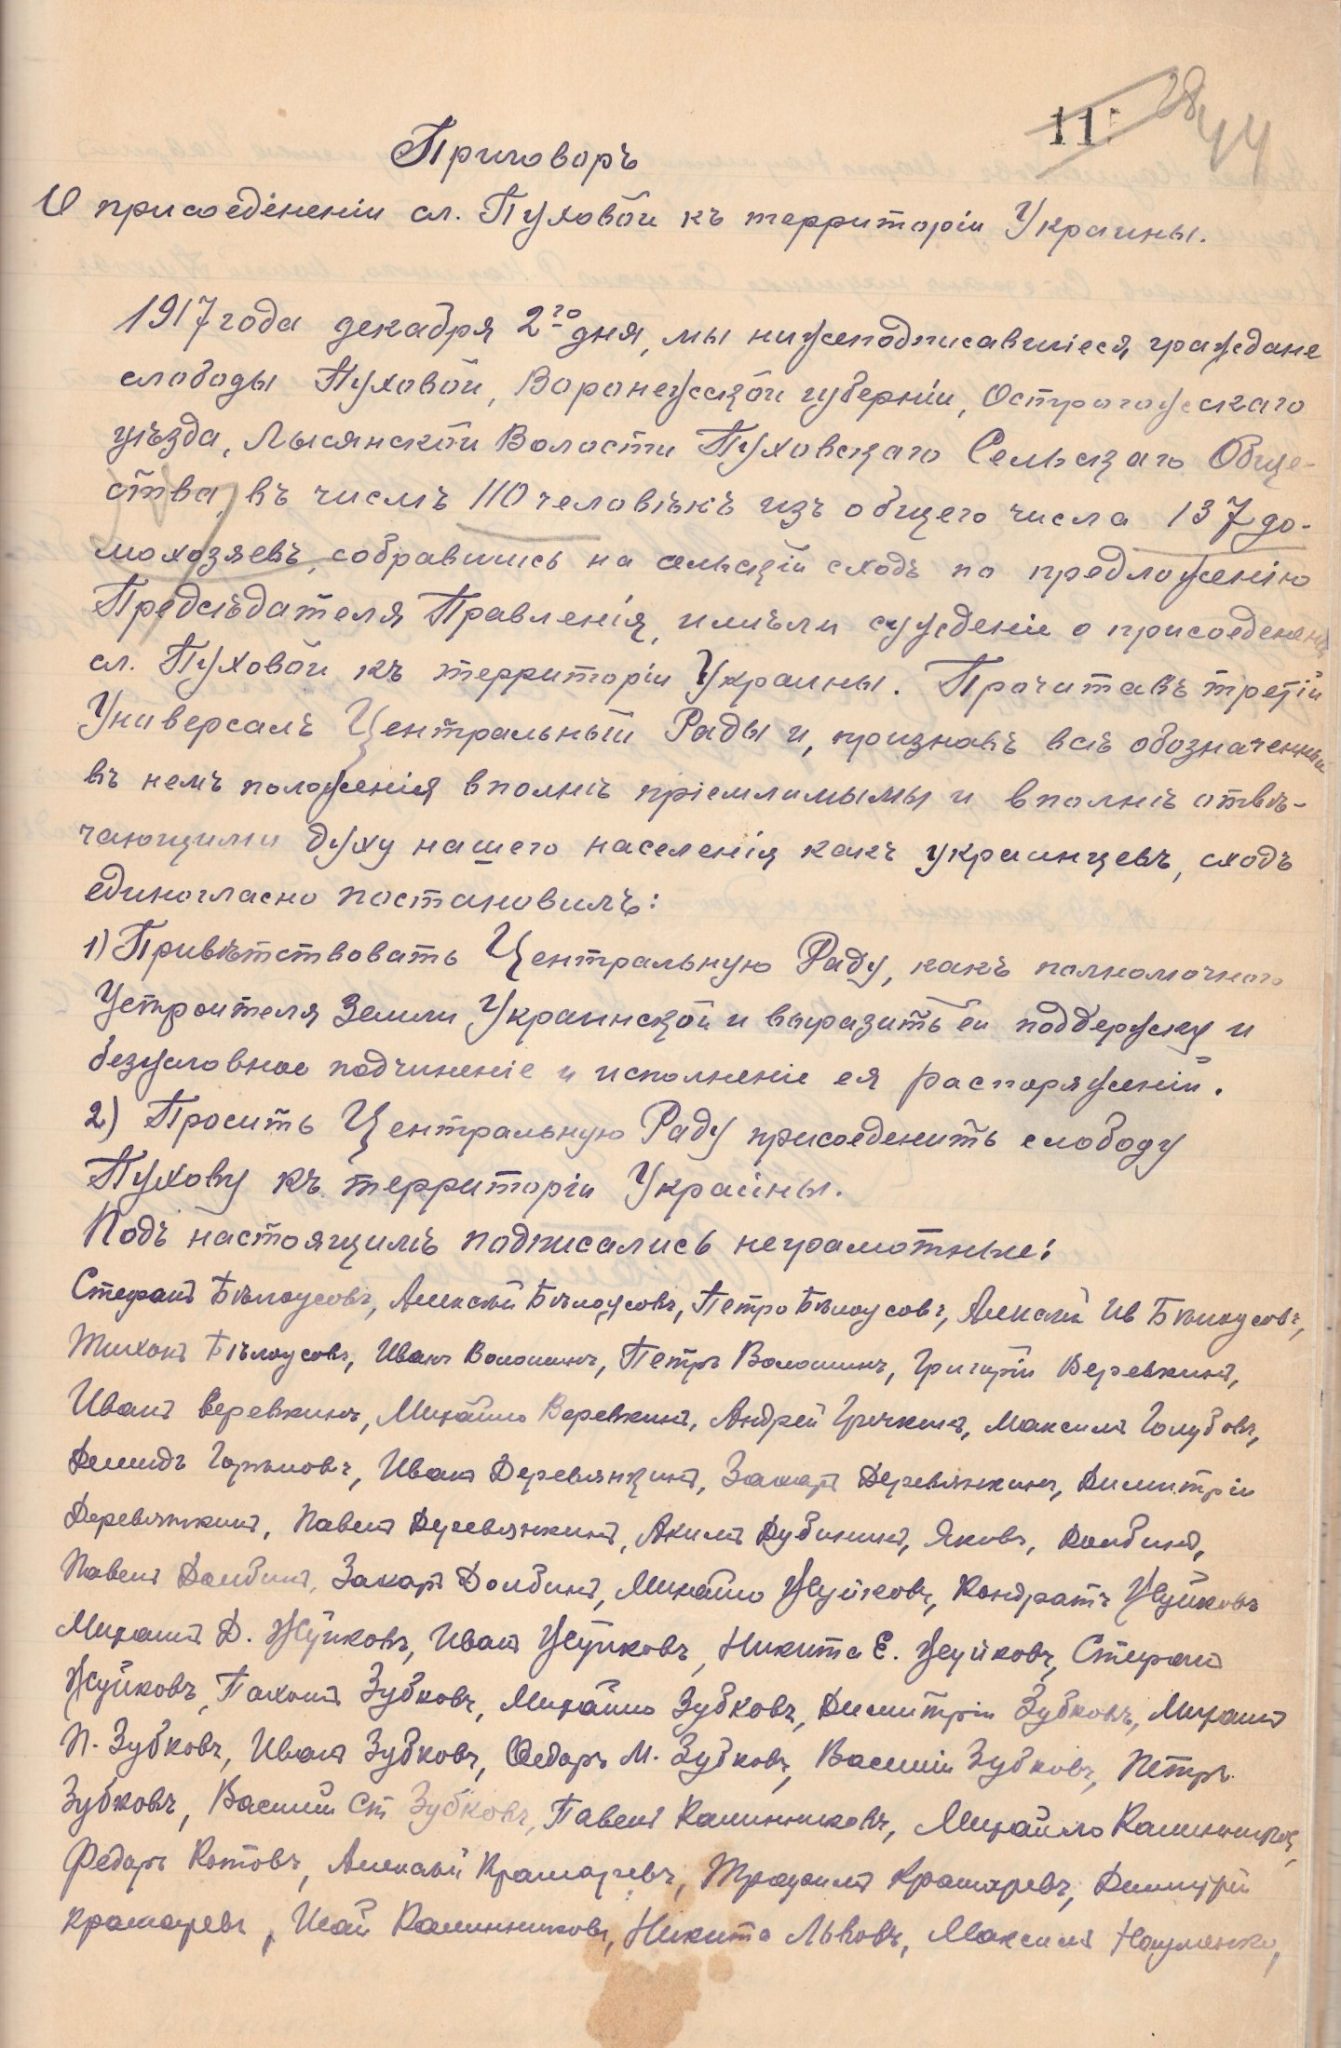 11
28
44
Приговоръ
О присоедіненіи сл. Пуховой къ территоріи Украины.
1917 года декабря 2го дня, мы нижеподписавшіеся граждане
слободы Пуховой, Воронежской губерніи, Острогожскаго
уѣзда, Лысянской Волости Пуховскаго Сельскаго Обще-
ства, въ числѣ 110 человѣкъ изъ общего числа 137 до-
мохозяевъ, собравшись на сельскій сходъ по предложенію
Предсѣдателя Правленія, имѣли сужденіе о присоеденени
сл. Пуховой къ территоріи Украины. Прочитавъ третій
Универсалъ Центральный Рады и, признавъ всѣ обозначенный
въ немъ положенія вполнѣ пріемлимымы и вполнѣ отвѣ-
чающими духу нашего населенія какъ украинцевъ, сходъ
единогласно постановилъ:
1) Привѣтствовать Центральную Раду, какъ полномочного
Устроителя Земли Украинской и выразить ей поддержку и
безусловное подчиненіе и исполненіе ея распоряженій.
2) Просить Центральную Раду присоеденить слободу
Пухову къ территоріи Украины.
Подъ настоящимъ подписались неграмотные:
Стефанъ Бѣлоусовъ, Алексѣй Бѣлоусовъ, Петро Бѣлоусовъ, Алексѣй Ив Бѣлоусовъ,
Тихонъ Бѣлоусовъ, Иванъ Волошинъ, Петръ Волошинъ, Григорій Веревкинъ,
Иванъ Веревкинъ, Михайло Веревкинъ, Андрей Гричкинъ, Максимъ Голубовъ,
Демидъ Горловъ, Иванъ Деревянкинъ, Захаръ Деревянкинъ, Димитрій
Деревянкинъ, Павелъ Деревянкинъ, Акимъ Дубининъ, Яковъ, Долбинъ,
Павелъ Долбинъ, Захаръ Долбинъ, Михайло Жуйковъ, Кондратъ Жуйковъ
Михаилъ Д. Жуйковъ, Иванъ Жуйковъ, Никита Е. Жуйковъ, Стефанъ
Жуйковъ, Пахомъ Зубковъ, Михайло Зубковъ, Димитрій Зубковъ, Михаилъ
П. Зубковъ, Иванъ Зубковъ, Федоръ М. Зубковъ, Василій Зубковъ, Петръ
Зубковъ, Василій Ст Зубковъ, Павелъ Калинниковъ, Михайло Калинниковъ,
Федоръ Котовъ, Алексѣй Крамаревъ, Трофимъ Крамаревъ, Димитрій
Крамаревъ, Исай Калинниковъ, Никита Львовъ, Максимъ Науменко,